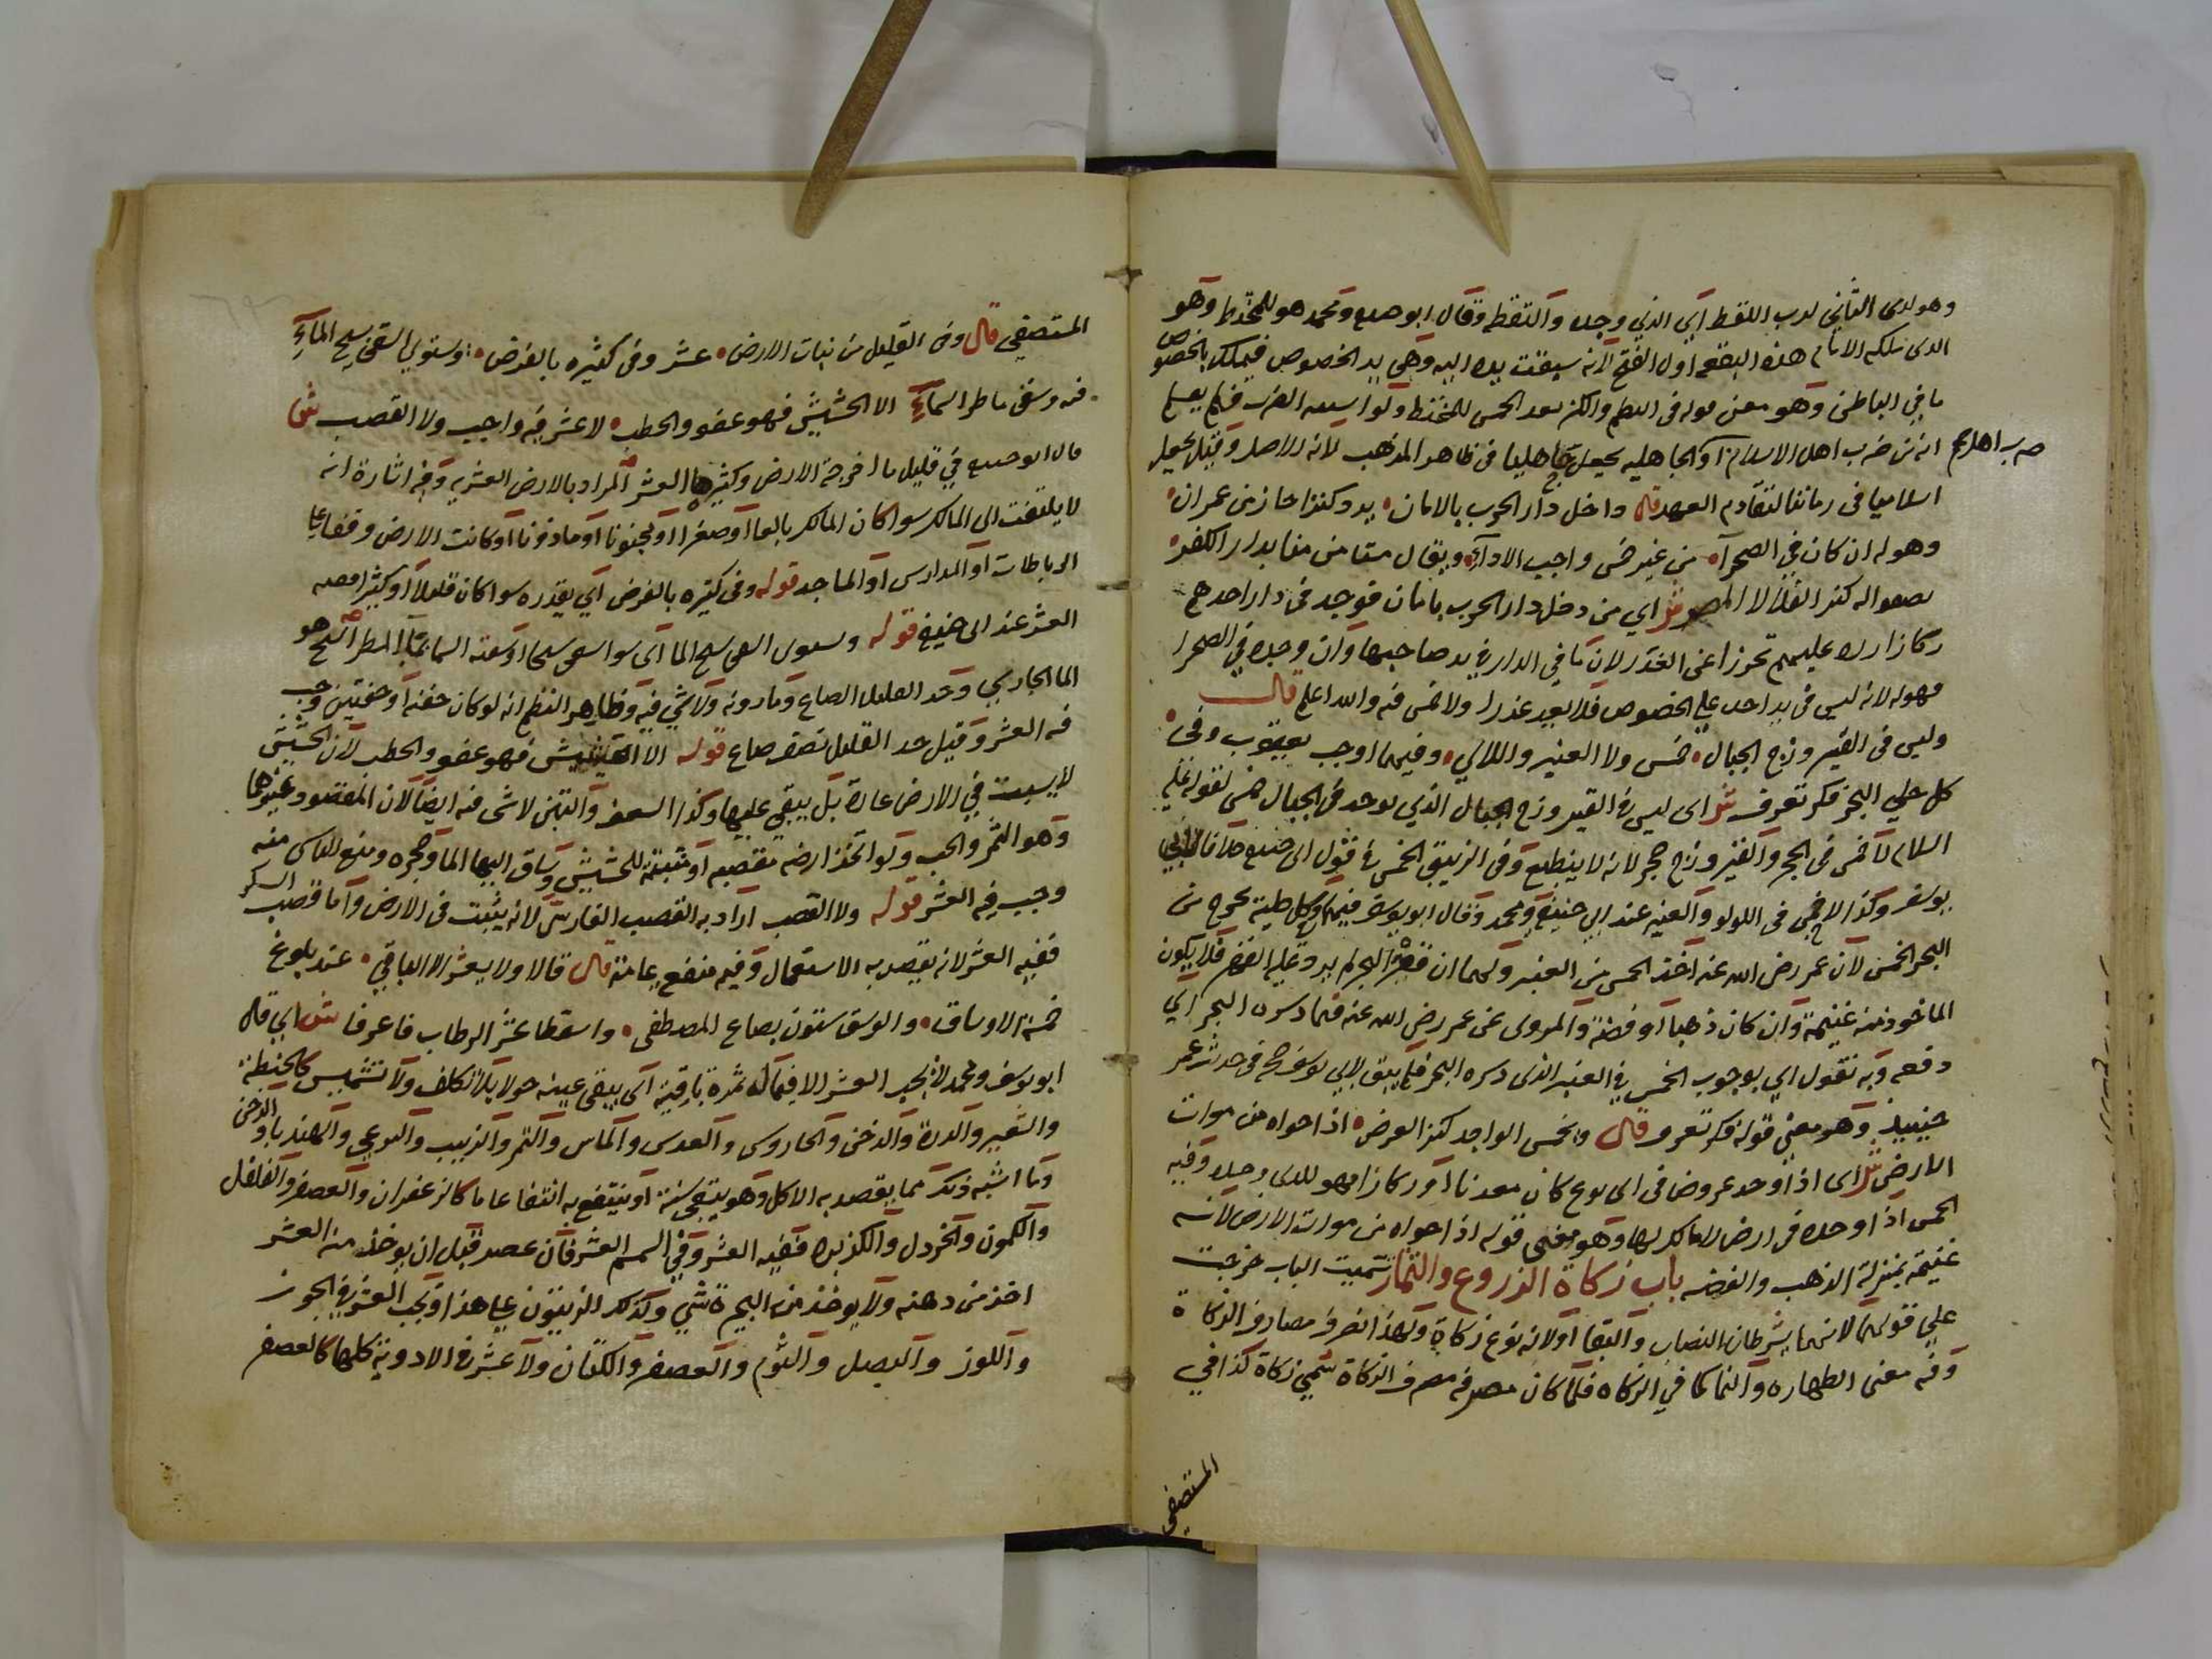 وهو لدى الثاني لرب اللقط اي الذي وجده والتقطه وقال ابو حنيفه ومحمد هو للمختط وهو
الذى ملكه الامام هذه البقعه اول الفتح لانه سبقت يده اليه وهي يد الخصوص فيملك بالخصوص
ما في الباطن وهو معنى قوله في النظم والكنز بعد الخمس للمختط ولو اشتبه الضرب فلم يعلم
انه من ضرب اهل الاسلام او الجاهليه يجعل جاهليا في ظاهر المذهب لانه الاصل وقيل يجعل
اسلاميا في زماننا لتقادم العهد قال داخل دار الحرب بالامان يرد كنزا حاز من عمران
وهو له ان كان في الصحراء من غير خمس واجب الاداء ويقال مستامن منا بدار الكفر
اي من دخل دار الحرب بامان فوجد في دار احدهم
ركازا رده عليهم تحرزا عن الغدر لان ما في الدار في يد صاحبها وان وجده في الصحرا
فهو له لانه ليس في يد احد على الخصوص فلا يعد غدرا ولا خمس فيه والله اعلم قال
وليس في الفيروزج الجبال خمس ولا العنبر واللالي وفيهما اوجب يعقوب وفي
كل حلي البحر فكر تعرف ش اى ليس في الفيروزج الجبال الذي يوجد في الجبال خمس لقوله عليه
السلام لا خمس في الحجر والفيروزج حجر لانه لا ينطبع وفي الزيبق الخمس في قول ابى حنيفه خلافا لابي
يوسف وكذا لا يجب في اللولو والعنبر عند ابي حنيفة ومحمد وقال ابو يوسف فيهما وكل حلية تخرج من
البحر الخمس لان عمر رضى الله عنه اخذ الخمس من العنبر ولهما ان قعر البحر لم يرد عليه القهر فلا يكون
الماخوذ منه غنيمة وان كان ذهبا او فضة والمروى عن عمر رضي الله عنه فيما دسره البحر اي
دفعه وبه نقول اي بوجوب الخمس في العنبر الذى دسره البحر فلم يبق لابي يوسف حجة في حديث عمر
حينيذ وهو معنى قوله فكر تعرف قال وخمس الواجد كنز العرض اذا حواه من موات
الارض ش اى اذا وجد عروضا في اى نوع كان معدنا او ركازا فهو للذى وجده وفيه
الخمس اذا وجده في ارض لا مالك لها وهو معنى قوله اذا حواه من موات الارض لانه
غنيمة بمنزلة الذهب والفضه باب زكاة الزروع والثمار سميت الباب خرجت
على قولهما لانهما يشرطان النصاب والبقا او لانه نوع زكاة ولهذا تصرف مصارف الزكاة
وفيه معنى الطهاره والنما كما في الزكاه فلما كان مصرفه مصرف الزكاة سمي زكاة كذا في
المستصفى
المستصفى قال وفي القليل من نبات الارض عشر وفى كثيره بالفرض ويستوي السقى بسيح الماء
فيه وسقى ماطر السماء الا الحشيش فهو عفو والحطب لا عشر فيه واجب ولا القصب ش
قال ابو حنيفه في قليل ما اخرجته الارض وكثيرها العشر المراد بالارض العشريه وفيه اشارة انه
لا يلتفت الى المالك سوا كان المالك بالغا او صغيرا او مجنونا او ماذونا او كانت الارض وقفا على
الرباطات او المدارس او المساجد قوله وفى كثيره بالفرض اي بقدره سوا كان قليلا او كثيرا ففيه
العشر عند ابى حنيفه قوله ويستوى السقى بسيح الما اى سوا سقى سيحا او سقته السما بماء المطر السيح هو
الما الجاري وحد القليل الصاع وما دونه ولا شي فيه وظاهر النظم انه لو كان حفنه او حفنتين وجب
فيه العشر وقيل حد القليل نصف صاع قوله الا الحشيش فهو عفو والحطب لان الحشيش
لا ينبت في الارض عادة بل يبقى عليها وكذا السعف والتبن لا شى فيه ايضا لان المقصود غيرها
وهو الثمر والحب ولو اتخذ ارضه مقصبه او منبتة للحشيش وساق اليها الما وحجره ومنع الناس منه
وجب فيه العشر قوله ولا القصب اراد به القصب الفارسى لانه ينبت في الارض واما قصب السكر
ففيه العشر لانه يقصد به الاستعمال وفيه منفع عامة قال قالا ولا يعشر الا الباقي عند بلوغ
خمسة الاوساق والوسق ستون بصاع المصطفى واسقطا عشر الرطاب فاعرفا ش اي قال
ابو يوسف ومحمد لا يجب العشر الا فيما له ثمرة باقية اى يبقى عينه حولا بلا تكلف ولا تشميس كالحنطة
والشعير والذرة والدخن والجاروس والعدس والماش والتمر والزبيب
وما اشبه ذلك مما يقصد به الاكل وهو يبقى سنة او ينتفع به انتفاعا عاما كالزعفران والعصفر والفلفل
والكمون والخردل والكزبره ففيه العشر وفي السمسم العشر فان عصر قبل ان يوخذ منه العشر
اخذ من دهنه ولا يوخذ من البحيرة شي وكذلك الزيتون على هذا ويجب العشر في الجوز
واللوز والبصل والثوم والعصفر والكتان ولا عشر في الادوية كلها كالعصفر